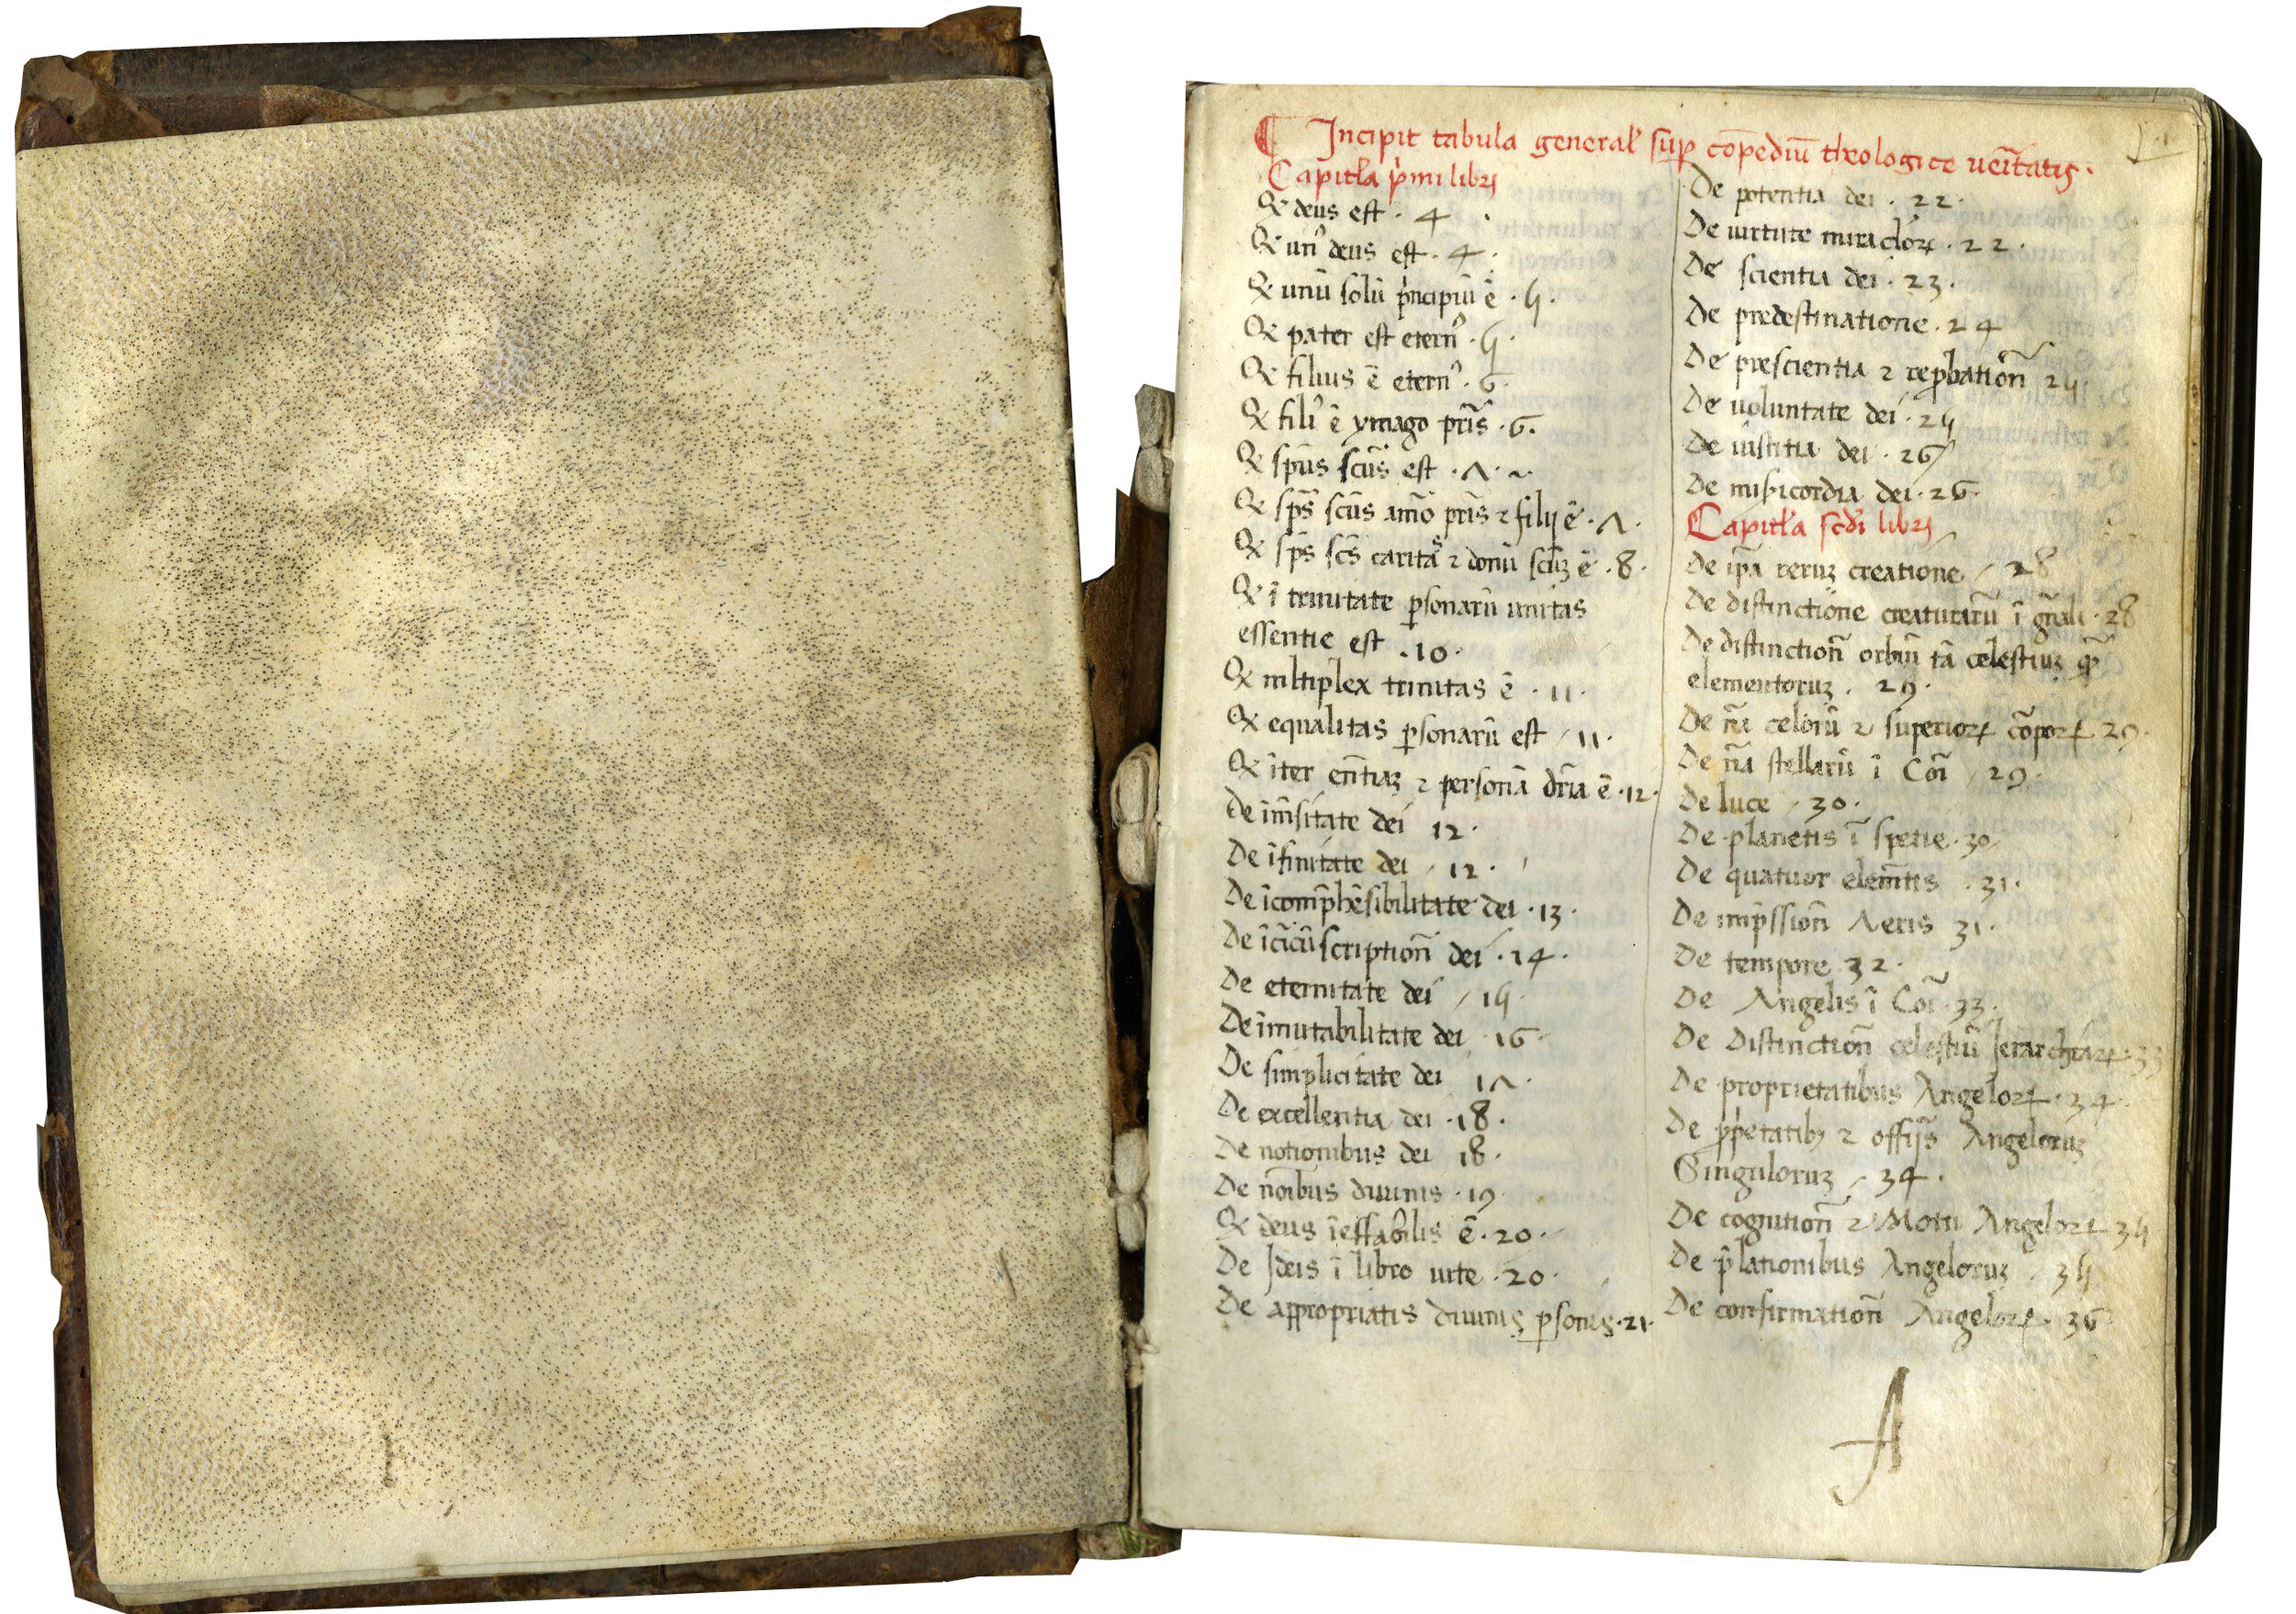 ¶ Incipit tabula general' suꝑ cōpediū theologice ueritatis.
Capitl'a p'mi libri
Qꝫ deus est . 4 .
Qꝫ unꝰ deus est . 4 .
Qꝫ unū solū p'ncipiū ē . 5 .
Qꝫ pater est eternꝰ . 5 .
Qꝫ filius ē eternꝰ . 6 .
Qꝫ filiꝰ ē ymago pr̄is . 6 .
Qꝫ sp̄us scūs est . 7 .
Qꝫ sp̄s scūs amō pr̄is ⁊ filij ē . 7 .
Qꝫ sp̄s scs̄ caritas ⁊ donū scūꝫ ē . 8 .
Qꝫ ī trinitate ꝑsonarū unitas
essentie est . 10 .
Qꝫ mltiplex trinitas ē . 11 .
Qꝫ equalitas ꝑsonarū est / 11 .
Qꝫ īter ēntiaꝫ ⁊ personā dr̄ia ē . 12 .
De īmēsitate dei 12 .
De īfinitate dei / 12 .
De īcomp̄hēsibilitate dei . 13 .
De īcīcūscription̄ dei . 14 .
De eternitate dei / 15 .
De īmutabilitate dei 16
De simplicitate dei 17 .
De excellentia dei . 18 .
De notionibus dei 18 .
De noībus diuinis . 19
Qꝫ deus īeffabilis ē . 20 .
De Ideis ī libro uite . 20 .
De appropriatis diuinis ꝑsonis . 21 .
De potentia dei . 22 .
De uirtute miraclōꝝ . 22 .
De scientia dei . 23 .
De predestinatione . 24
De prescientia ⁊ reꝓbation̄ 25
De uoluntate dei . 25
De iustitia dei . 26
De misicordia dei . 26 .
Capitl'a scd̄i libri
De ip̄a reruꝫ creatione / 28
De distinctione creaturarū ī gn̄ali . 28
De distinction̄ orbiū tā celestiuꝫ qꝫ
elementoruꝫ . 29 .
De nā celorū ⁊ superioꝝ cōpoꝝ 29 .
De nā stellarū ī Coī / 29 .
De luce / 30 .
De planetis ī spetie . 30
De quatuor elemētis . 31 .
De imp̄ssion̄ Aeris 31 .
De tempore 32 .
De Angelis ī Coī . 33 .
De Distinction̄ celestiū Ierarchiaꝝ . 33
De proprietatibus Angeloꝝ . 34 .
De ꝓp̄etatibꝫ ⁊ offiijs Angeloruꝫ
Singuloruꝫ / 34 .
De cognition̄ ⁊ Motu Angeloꝝ 35
De p̄lationibus Angeloruꝫ / 35
De confirmation̄ Angeloꝝ . 36
A